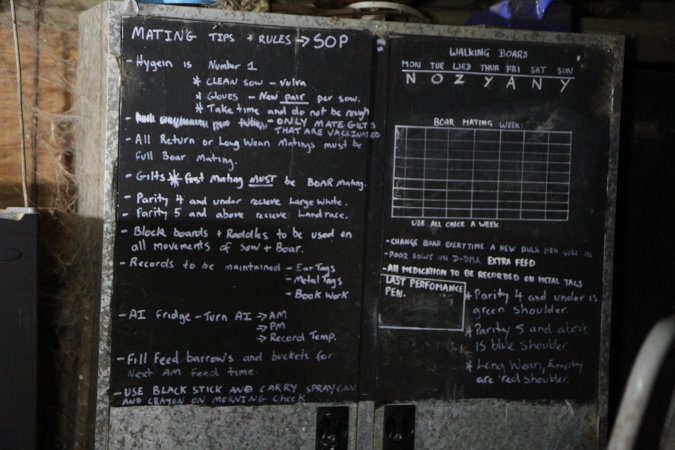 MATING TIPS + RULES → SOP
- Hygein is Number 1
* CLEAN SOW - Vulva
* GLOVES - New pair per sow.
* Take time and do not be rough
- ONLY MATE GILTS
THAT ARE VACCINATED
- All Return or Long Wean Matings must be
Full Boar Mating.
- Gilts * First Mating MUST be BOAR Mating.
- Parity 4 and under recieve Large White.
- Parity 5 and above recieve Landrace.
- Block boards + Raddles to be used on
all movements of Sow + Boar.
- Records to be maintained - Ear Tags
- Metal Tags
- Book Work
- AI Fridge - Turn AI → AM
→ PM
→ Record Temp.
- Fill Feed barrow's and buckets for
Next AM Feed time.
- USE BLACK STICK AND CARRY SPRAY CAN
AND CRAYON ON MORNING CHECK
WALKING BOARS
MON TUE WED THUR FRI SAT SUN
N O Z Y A N Y
BOAR MATING WEEK:
USE ALL ONCE A WEEK
- CHANGE BOAR EVERYTIME A NEW BULK PEN GOES IN
- POOR SOWS ON D-DMA EXTRA FEED
- All MEDICATION TO BE RECORDED ON METAL TAGS
LAST PERFOMANCE
PEN.
* Parity 4 and under is
green shoulder.
* Parity 5 and above
is blue shoulder.
* Long Wean, Empty
are red shoulder.